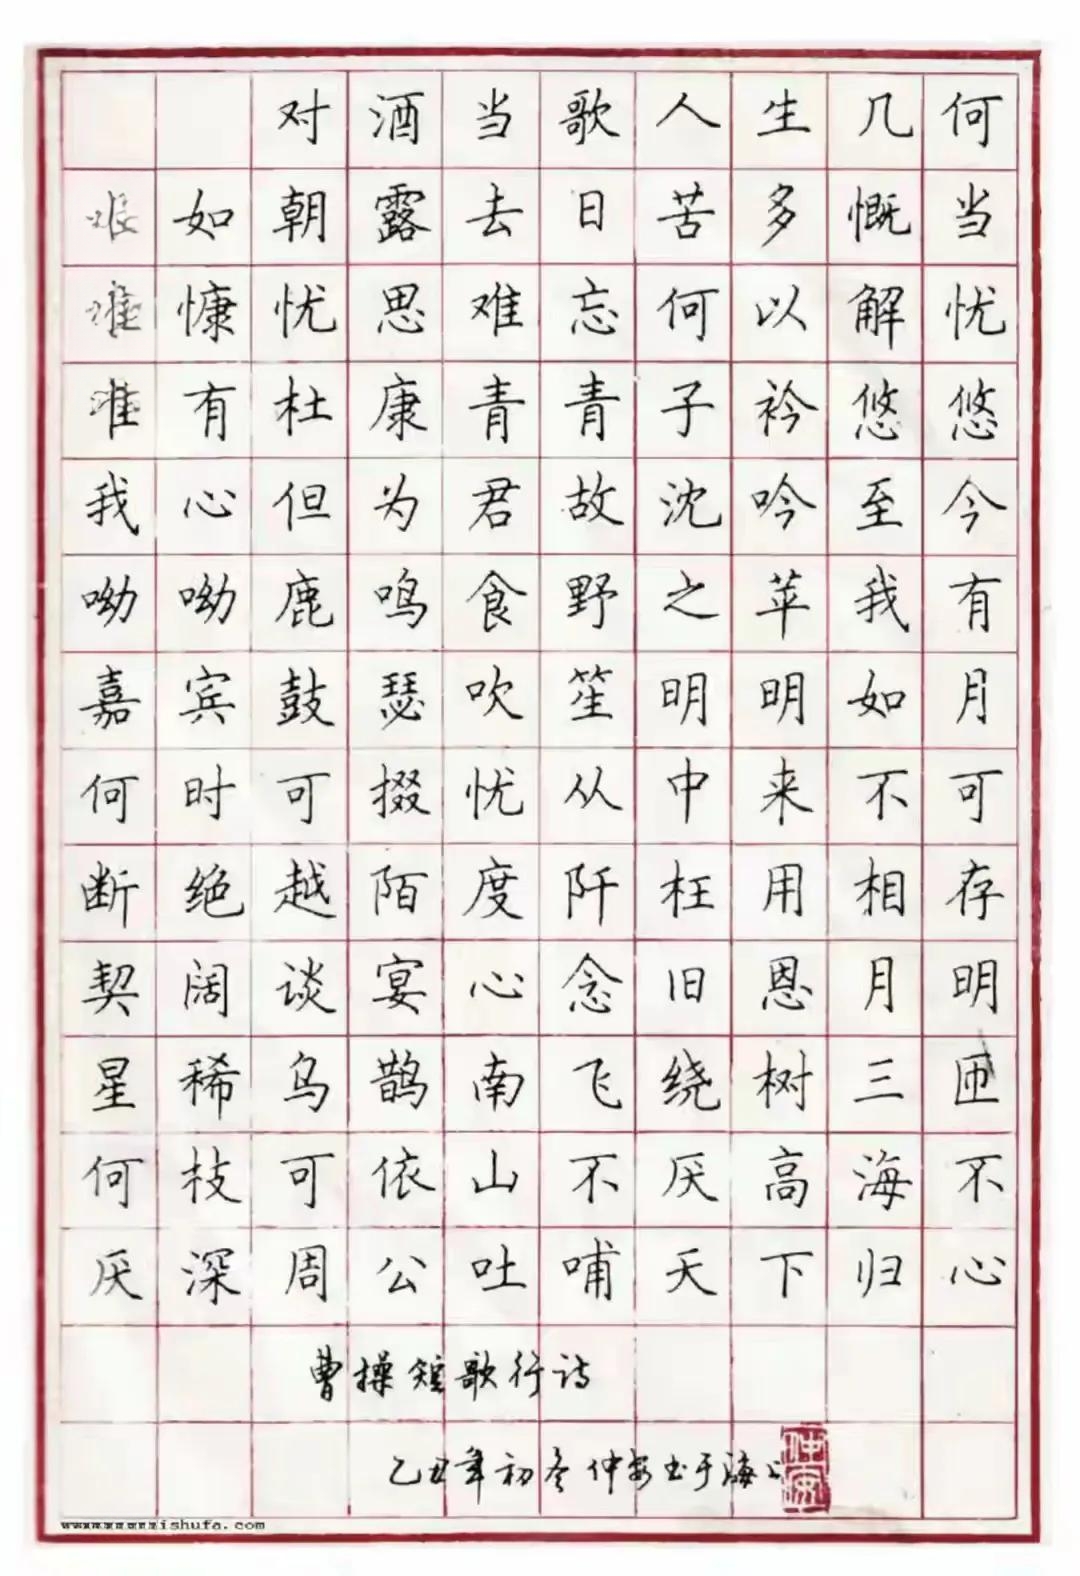 对酒当歌人生几何
如朝露去日苦多慨当
慷忧思难忘何以解忧
有杜康青青子衿悠悠
我心但为君故沈吟至今
呦呦鹿鸣食野之苹我有
嘉宾鼓瑟吹笙明明如月
何时可掇忧从中来不可
断绝越陌度阡枉用相存
契阔谈宴心念旧恩月明
星稀乌鹊南飞绕树三匝
何枝可依山不厌高海不
厌深周公吐哺天下归心
曹操短歌行诗
乙丑年初冬仲安书于海上
仲安